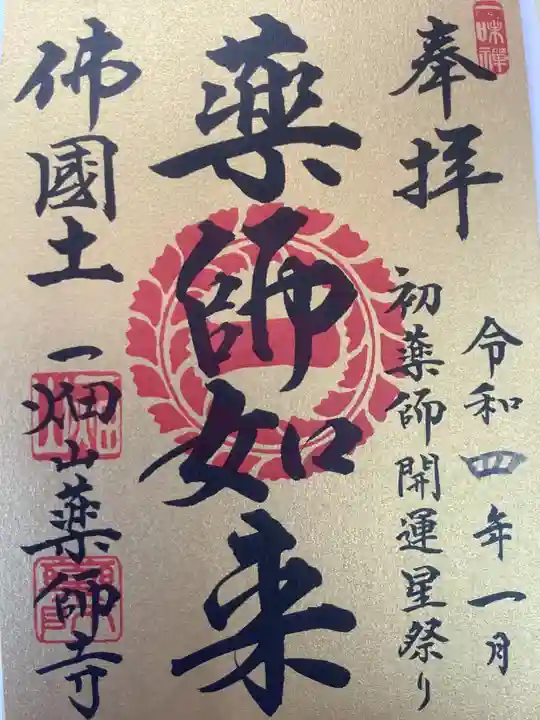 一味禅
奉拝
令和四年一月
初薬師開運星祭り
薬師如来
佛國土
一畑山薬師寺